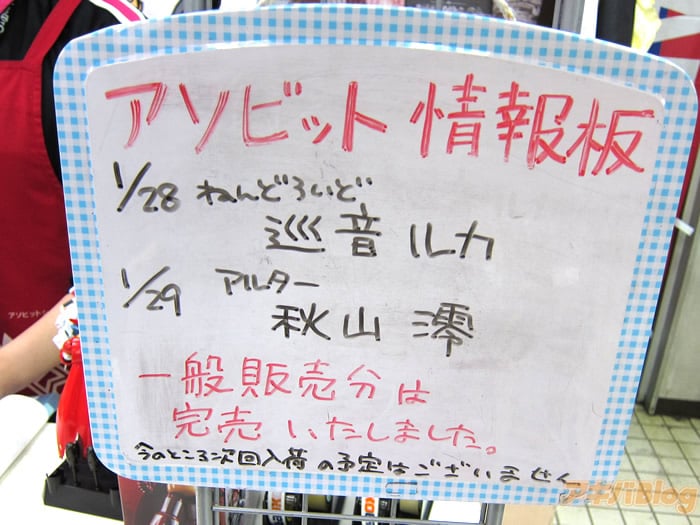 アソビット情報板
1/28 ねんどろいど
巡音ルカ
1/29 アルター
秋山 澪
一般販売分は
完売いたしました。
今のところ次回入荷の予定はございません
アソビット
アキバBlog